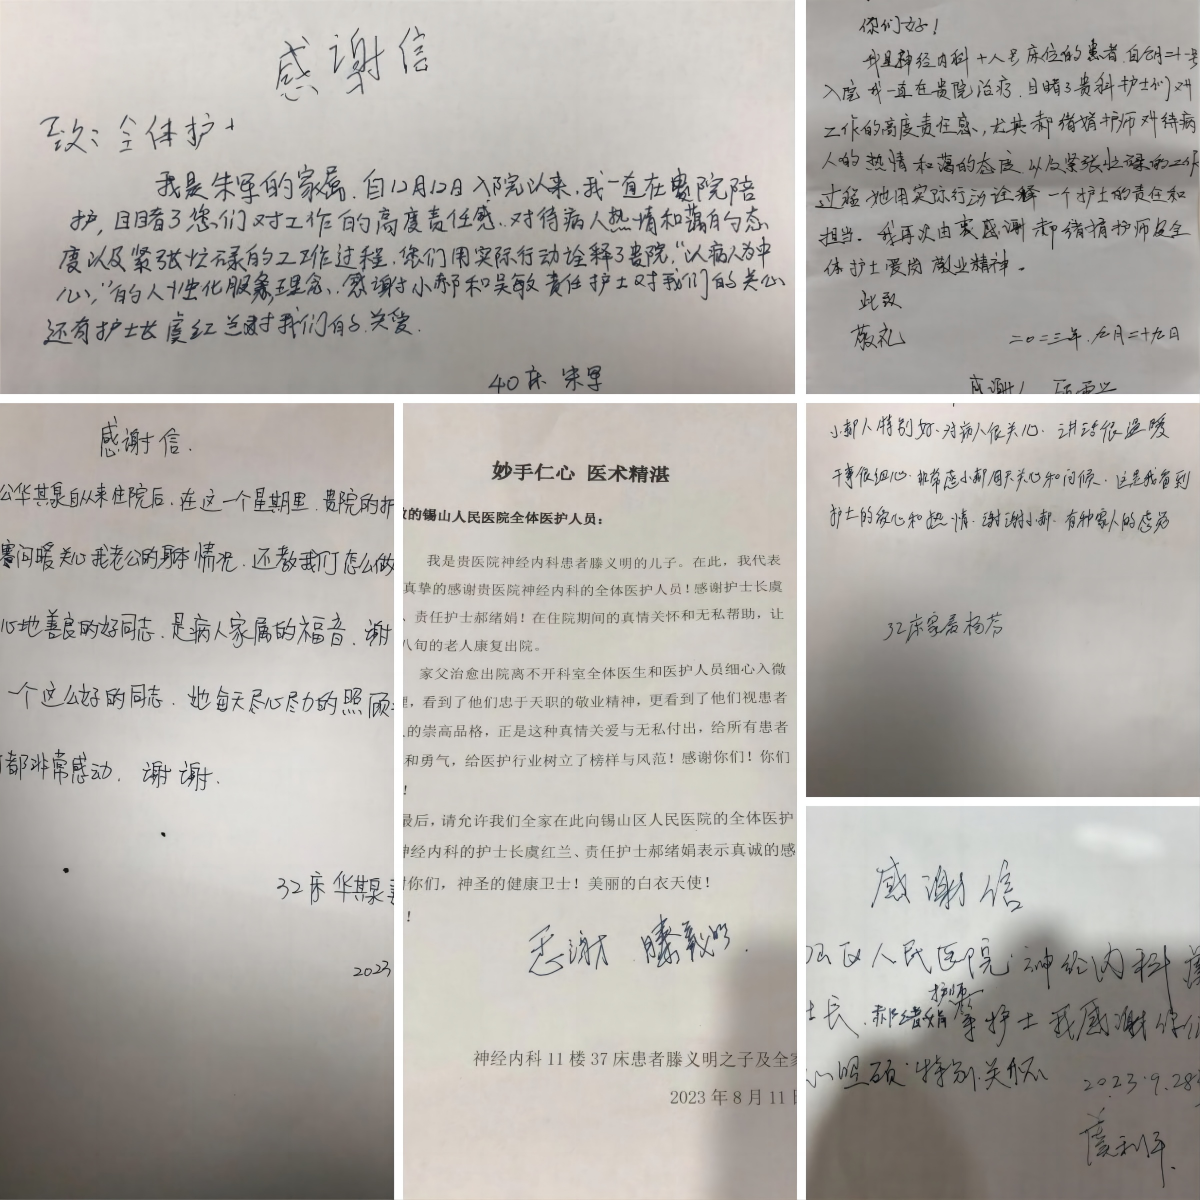 感谢信
致：全体护士
我是朱军的家属，自12月12日入院以来，我一直在贵院陪
护，目睹了您们对工作的高度责任感。对待病人热情和蔼的态
度以及紧张忙碌的工作过程，您们用实际行动诠释了贵院，“以病人为中
心，”的人性化服务理念、感谢小郝和吴敏责任护士对我们的关心
还有护士长虞红兰对我们的关爱.
40床
你们好！
我是神经内科十八号床位的患者，自
入院我一直在贵院治疗，目睹了贵科护士们对
工作的高度责任感，尤其郝绪娟护师对待病
人的热情和蔼的态度以及紧张忙碌的工作
过程她用实际行动诠释一个护士的责任和
担当。我再次由衷感谢郝绪娟护师及全
体护士爱岗敬业精神。
此致
敬礼
二〇二三年.九月二十九日
感谢人
感谢信.
公华其泉自从来住院后，在这一个星期里，贵院的护
寒问暖关心我老公的身体情况，还教我们怎么做
心地善良的好同志，是病人家属的福音，谢
一个这么好的同志，她每天尽心尽力的照顾
都非常感动，谢谢.
32床华其泉
2023
妙手仁心 医术精湛
的锡山人民医院全体医护人员：
我是贵医院神经内科患者滕义明的儿子。在此，我代表
真挚的感谢贵医院神经内科的全体医护人员！感谢护士长虞
、责任护士郝绪娟！在住院期间的真情关怀和无私帮助，让
八旬的老人康复出院。
家父治愈出院离不开科室全体医生和医护人员细心入微
，看到了他们忠于天职的敬业精神，更看到了他们视患者
的崇高品格，正是这种真情关爱与无私付出，给所有患者
和勇气，给医护行业树立了榜样与风范！感谢你们！你们
！
最后，请允许我们全家在此向锡山区人民医院的全体医护
神经内科的护士长虞红兰、责任护士郝绪娟表示真诚的感
你们，神圣的健康卫士！美丽的白衣天使！
！
感谢 滕义明.
神经内科 11 楼 37 床患者滕义明之子及全家
2023 年 8 月 11 日
小郝人特别好.对病人很关心. 讲话很温暖
干事很细心.非常感小郝周天关心和问候. 这是我看到
护士的爱心和热情.谢谢小郝.有种家人的感觉
32床家属杨芬
感谢信
区人民医院神经内科虞
士长，郝绪娟护师等护士我感谢你们
心照顾特别关怀
2023.9.28
虞利平